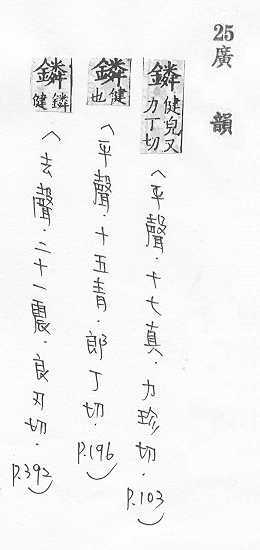 25廣韻
鏻健皃又力丁切〈平聲．十七真．力珍切．P.103〉
鏻健也〈平聲．十五青．郎丁切．P.196〉
鏻鏻健〈去聲．二十一震．良刃切．P.392〉